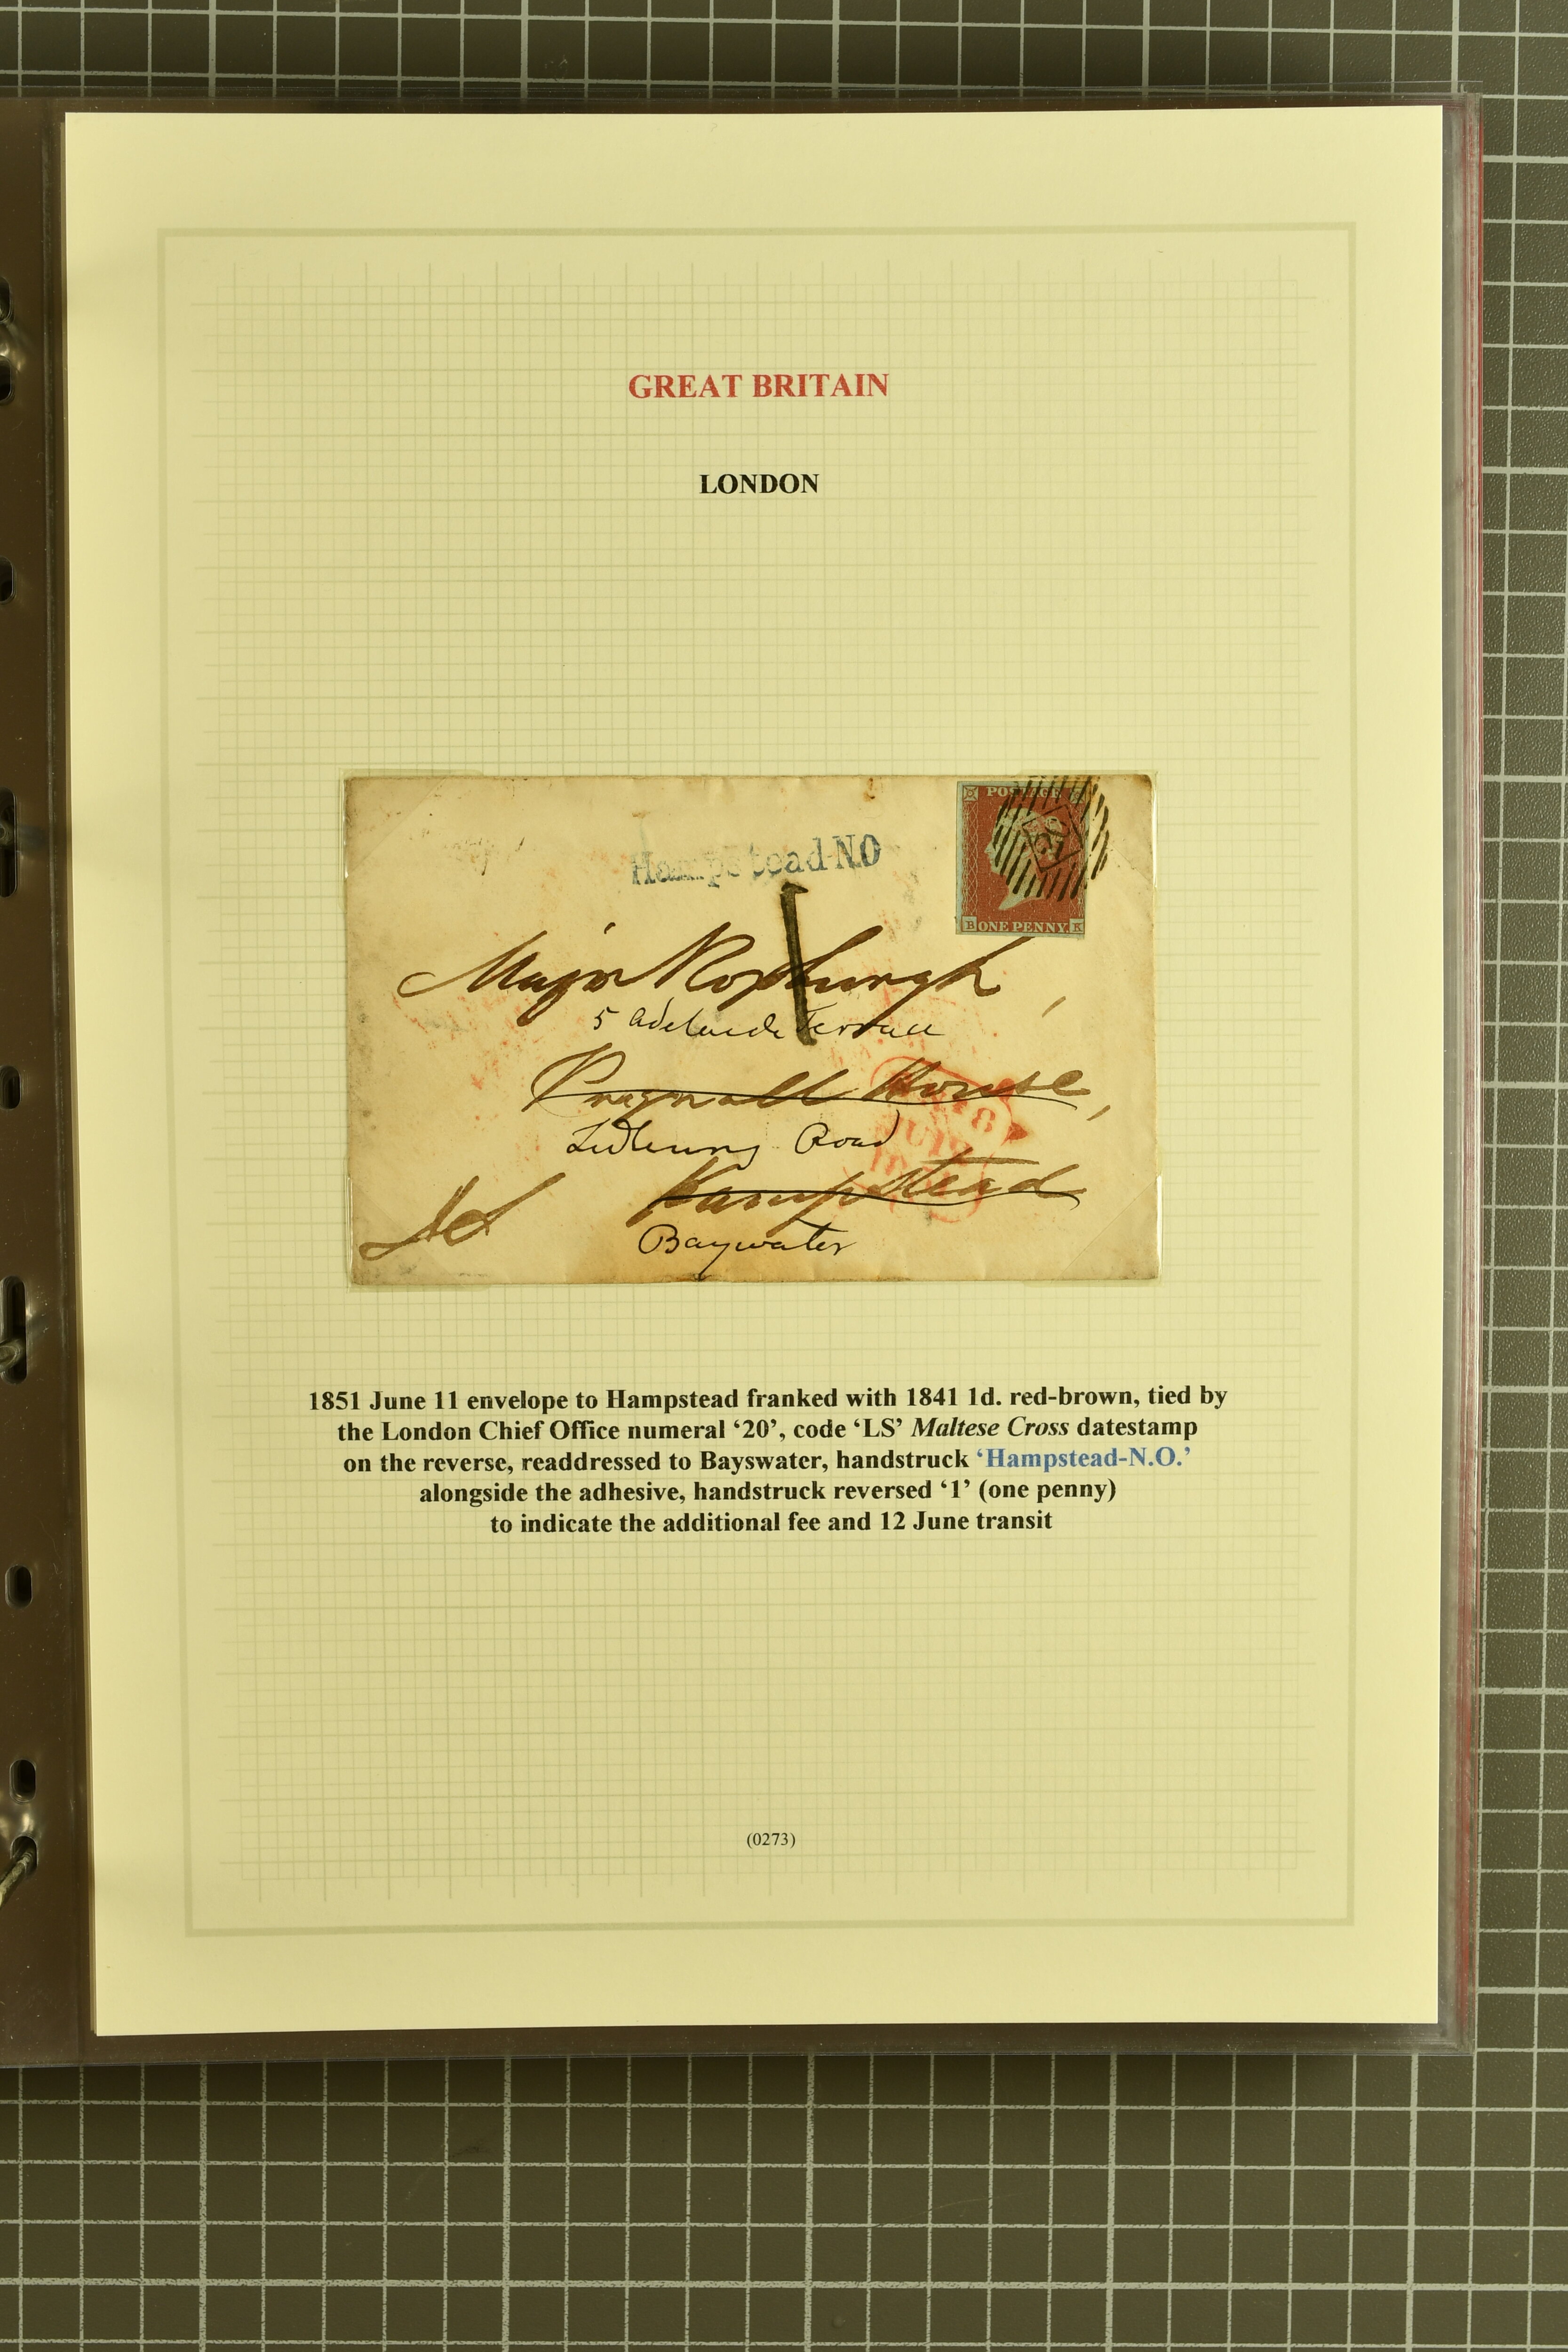 GREAT BRITAIN
LONDON
Hampstead-N.O
POSTAGE
B ONE PENNY. K
Major Roxburgh,
5 Adelaide Terrace
House,
Road
Hampstead
Bayswater
1851 June 11 envelope to Hampstead franked with 1841 1d. red-brown, tied by
the London Chief Office numeral ‘20’, code ‘LS’ Maltese Cross datestamp
on the reverse, readdressed to Bayswater, handstruck ‘Hampstead-N.O.’
alongside the adhesive, handstruck reversed ‘1’ (one penny)
to indicate the additional fee and 12 June transit
(0273)